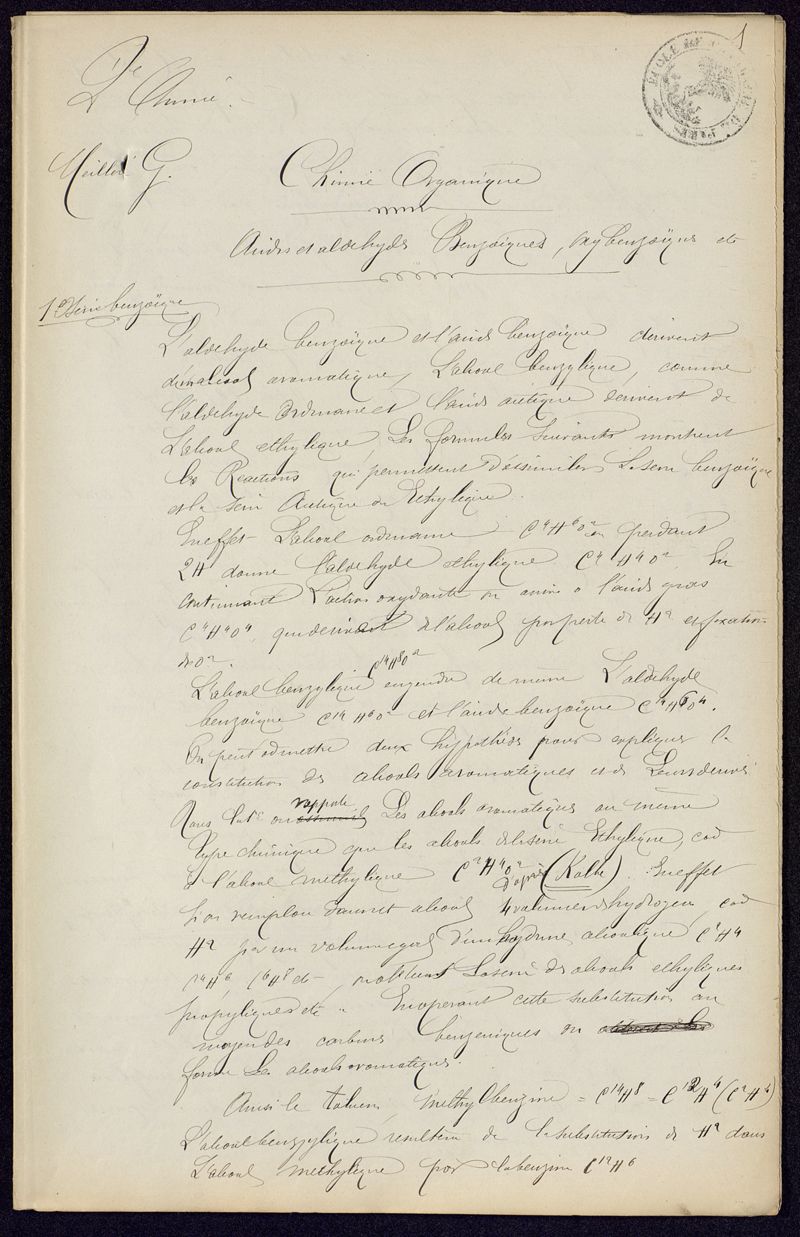 1
ÉCOLE DE PHARMACIE DE PARIS
2e Année.
G.
Chimie Organique
Acides et aldehydes Benzoïques, oxybenzoïques etc
1e Serie benzoïque
L'aldehyde benzoïque et l'acide benzoïque derivent
aromatique, L'alcool benzylique, comme
l'aldehyde ordinaire et l'acide acétique derivent de
L'alcool ethylique, Les formules suivantes montrent
les Reactions qui permettent d'assimiler la serie benzoïque
et la serie Acetique ou Ethylique.
En effet L'alcool ordinaire C4H6O2 en perdant
2H donne l'aldehyde ethylique C4H4O2 En
continuant L'action oxydante on arrive a l'acide gras
C4H4O4, qui derive de l'alcool par perte de H2 et fixation
de O2.
L'alcool benzylique C14H8O2 engendre de meme L'aldehyde
benzoïque C14H6O2 et l'acide benzoïque C14H6O4.
On peut admettre deux hypothèses pour expliquer la
constitution des alcools aromatiques et de Leurs derivés
Dans la 1e on rapporte Les alcools aromatiques au même
type chimique que les alcools de la serie Ethylique, cad
à l'alcool methylique C2H4O2 d'après (Kolbe). En effet
si on remplace dans cet alcool 4 volumes d'hydrogene, cad
H2 par un volume egal d'un carbure C4H4
C4H6, C6H8 etc, on obtient La serie des alcools ethyliques
propyliques etc. En operant cette substitution au
moyen des carbures benzeniques on
forme Les alcools aromatiques.
Ainsi le toluene, Methylbenzine = C14H8 = C12H4 (C2H4)
L'alcool benzylique resultera de la substitution de H2 dans
L'alcool methylique par la benzine C12H6